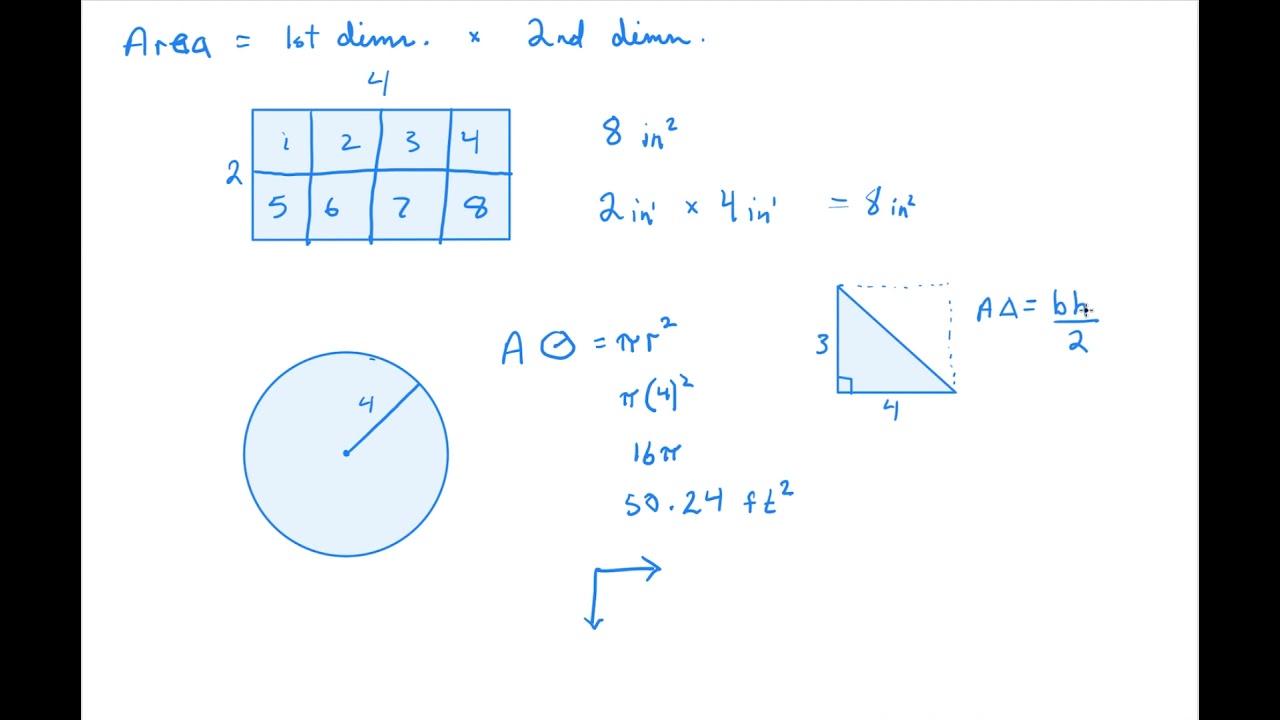 Area = 1st dimn. × 2nd dimn.
4
2
1 2 3 4
5 6 7 8
8 in²
2 in¹ × 4 in¹ = 8 in²
4
A ⊙ = πr²
π(4)²
16π
50.24 ft²
3
4
A Δ = bh/2